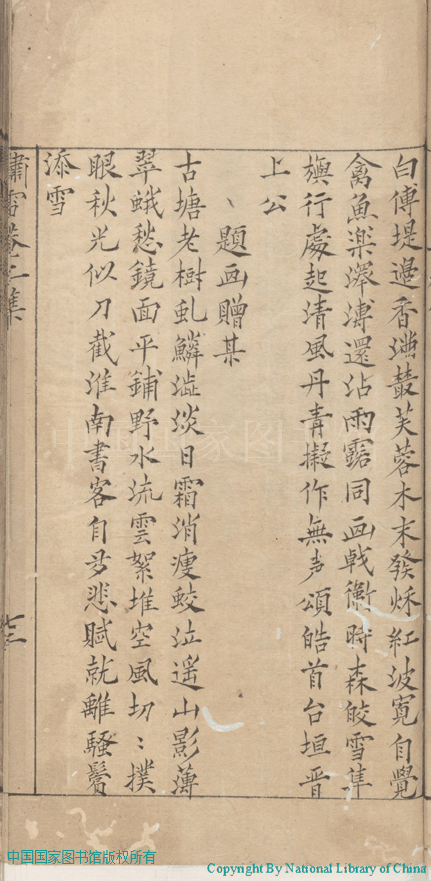 白傅堤邉香滿藂芙蓉木末發秌紅波寛自覺
禽魚楽澤溥還沾雨露同画戟衛時森皎雪隼
旟行處起清風丹青擬作無声頌皓首台垣晋
上公
題画贈某
古塘老樹虬鱗澁淡日霜消瘦蛟泣遥山影薄
翠蛾愁鏡面平鋪野水流雲絮堆空風切〻撲
眼秋光似刀截淮南書客自多悲賦就離騷鬢
添雪
嘯雪菴二集
中国国家图书馆版权所有
Copyright By National Library of China